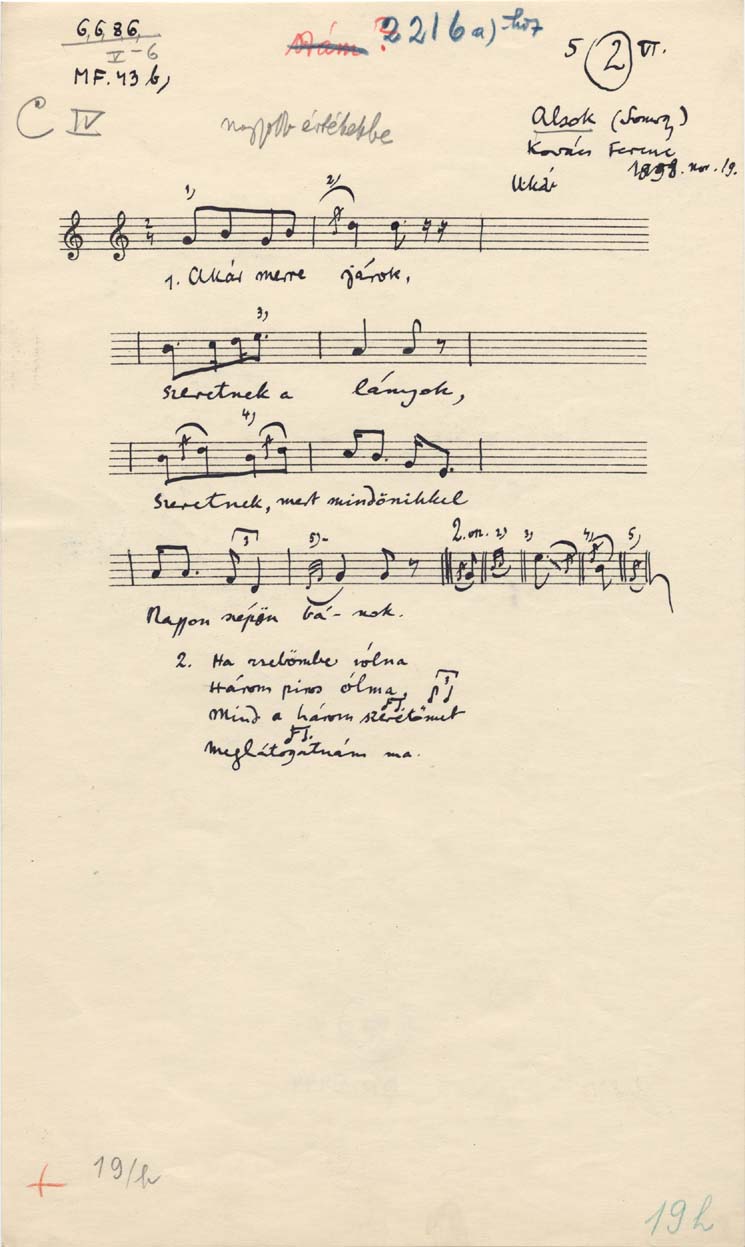 6,6,8,6,
V-6
MF. 43 b,
C IV
2216 a)-hoz
5 2 VI.
nagyobb értékekbe
Alsok (Somogy)
Kovács Ferenc
1898. nov. 19.
1) 2)
2/4
1. Akár merre járok,
3)
szeretnek a lányok,
4)
szeretnek, mert mindönikkel
3 5) 2. 2) 3) 4) 5)
Nagyon szépön bá-nok.
2. Ha zsebömbe vólna
Három piros ólma,
Mind a három szeretőmet
Meglátogatnám ma.
19/h
19h